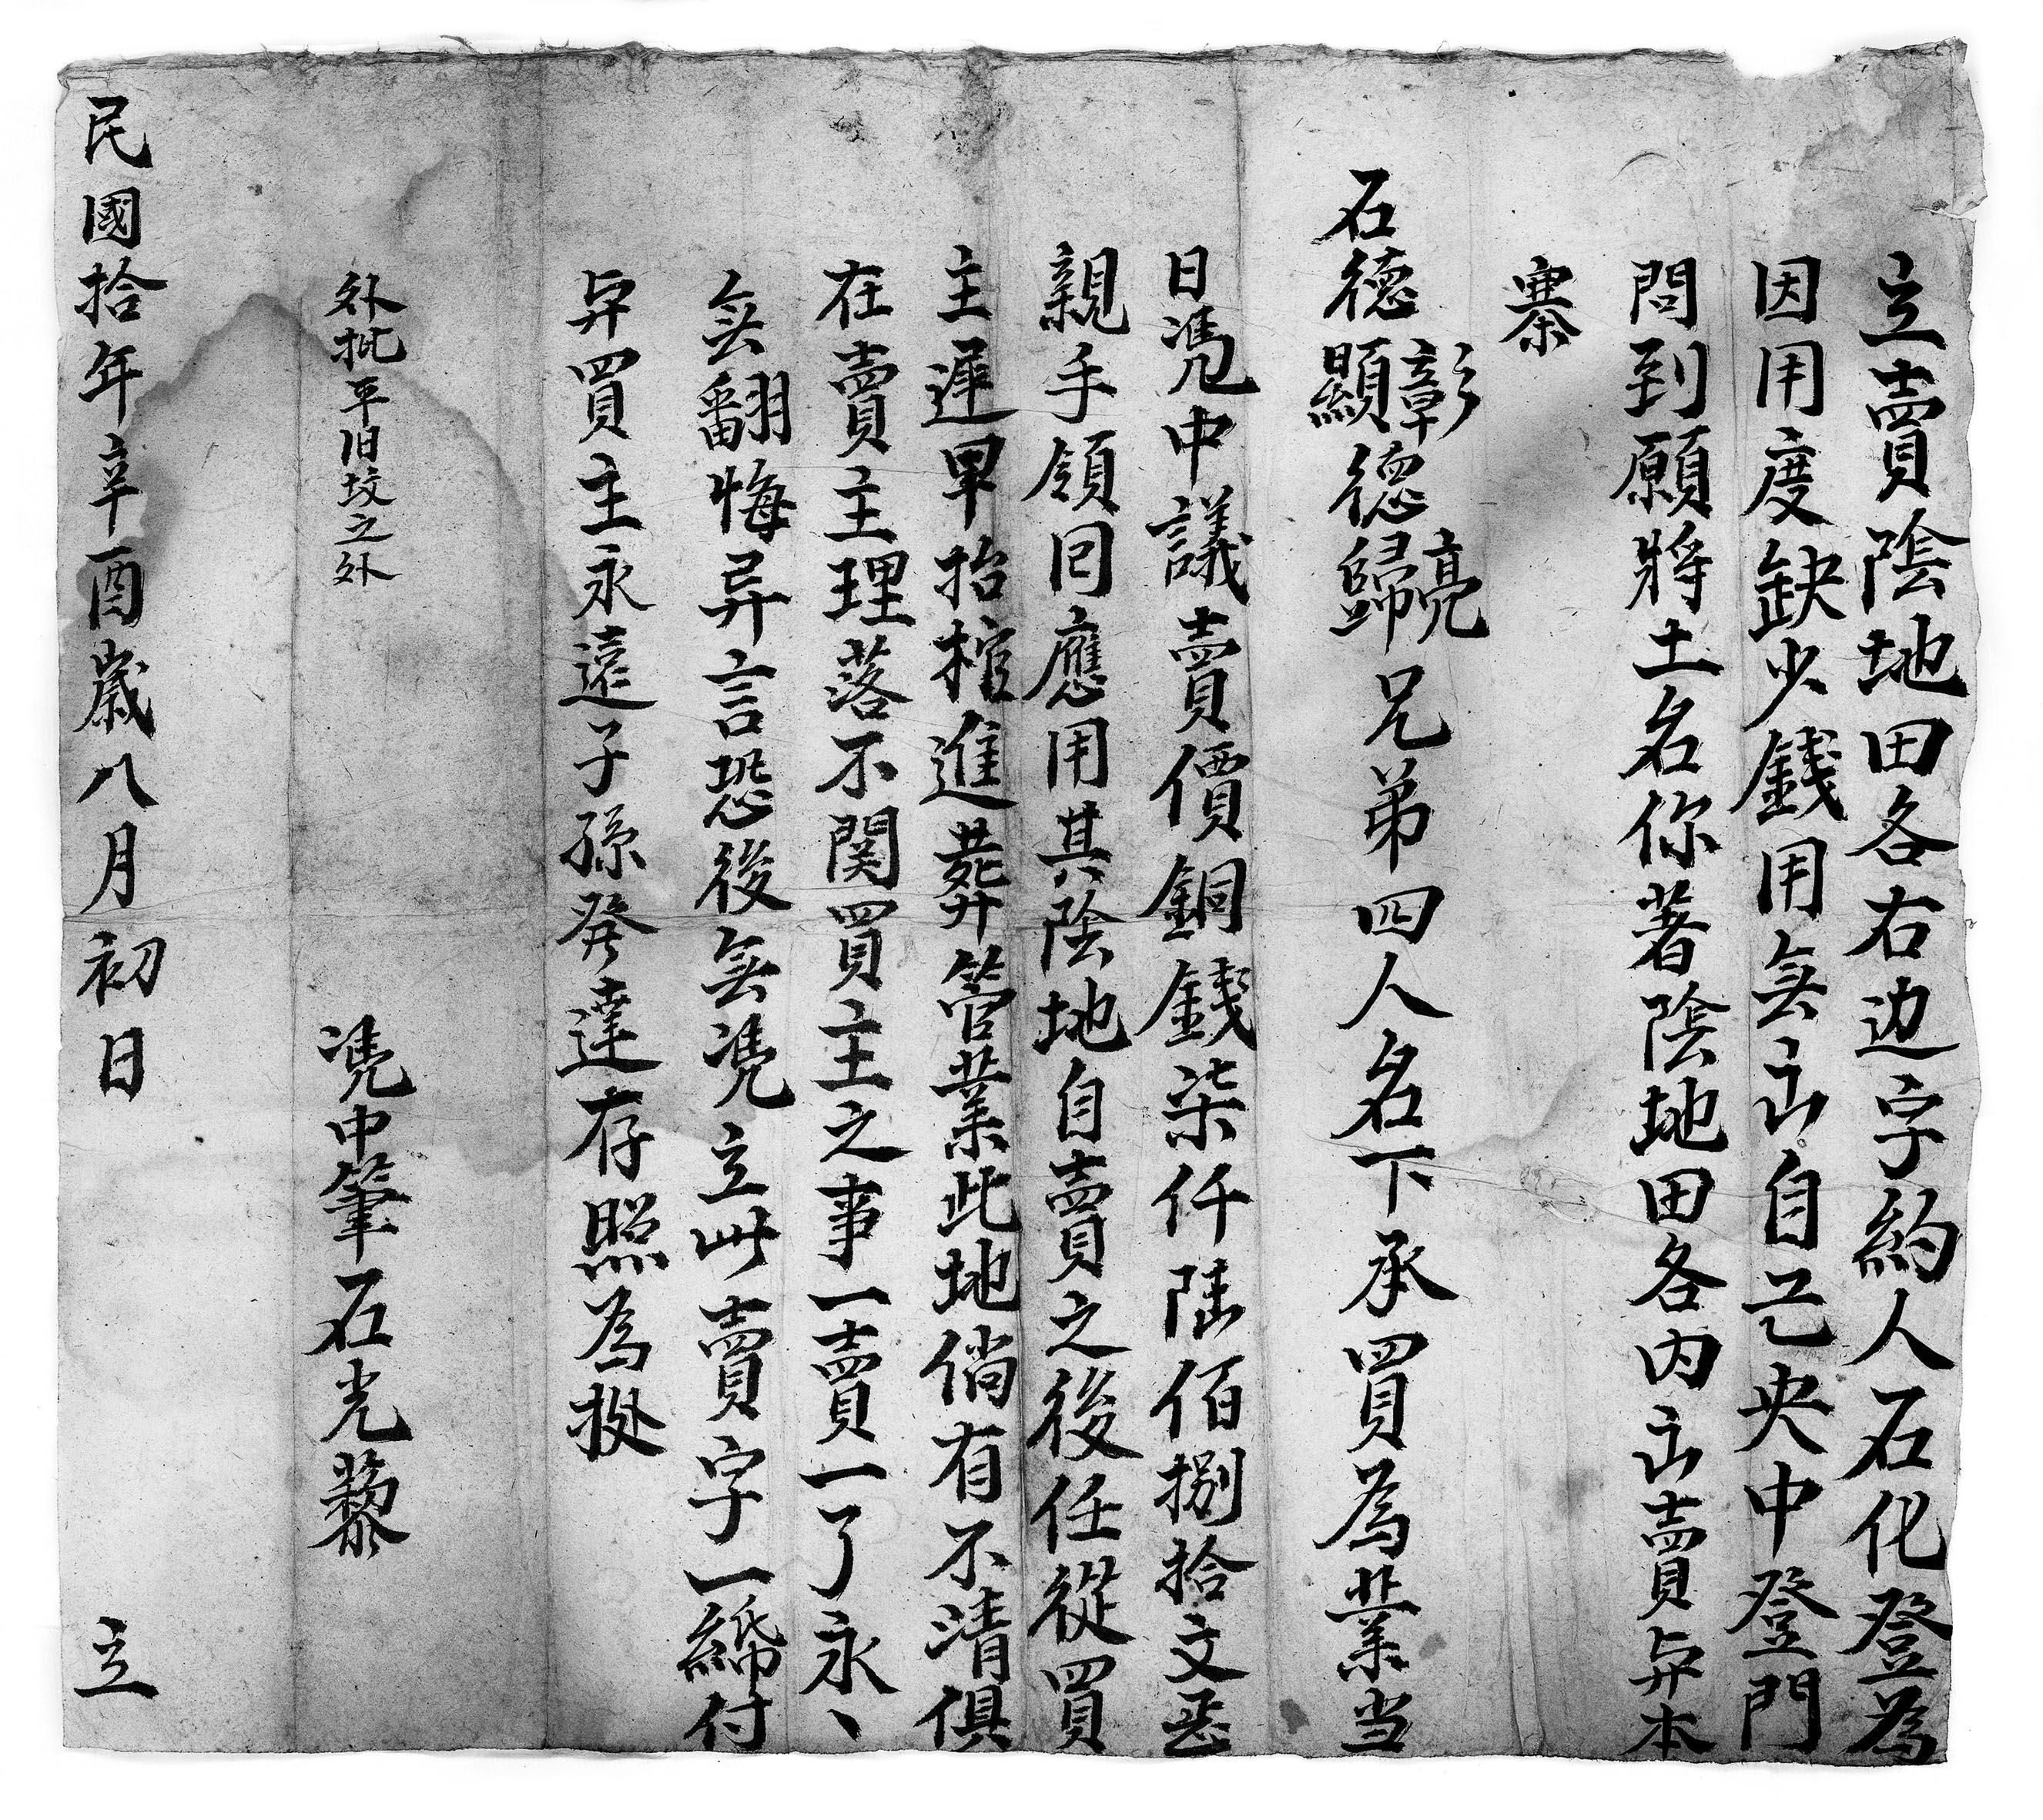 立賣陰地田各右边字約人石化登為
因用度缺少錢用無出自己央中登門
問到願將土名你著陰地田各内出賣与本
寨
石德顯彰德歸亮兄弟四人名下承買為業当
日凴中議賣價銅錢柒仟陸佰捌拾文
親手領囘應用其陰地自賣之後任從買
主遲早抬棺進葬管業此地倘有不清俱
在賣主理落不関買主之事一賣一了永、
無翻悔异言恐後無凴立此賣字一紙付
与買主永遠子孫發達存照為據
外批平旧坟之外
凴中筆石光藜
民國拾年辛酉歲八月初日 立